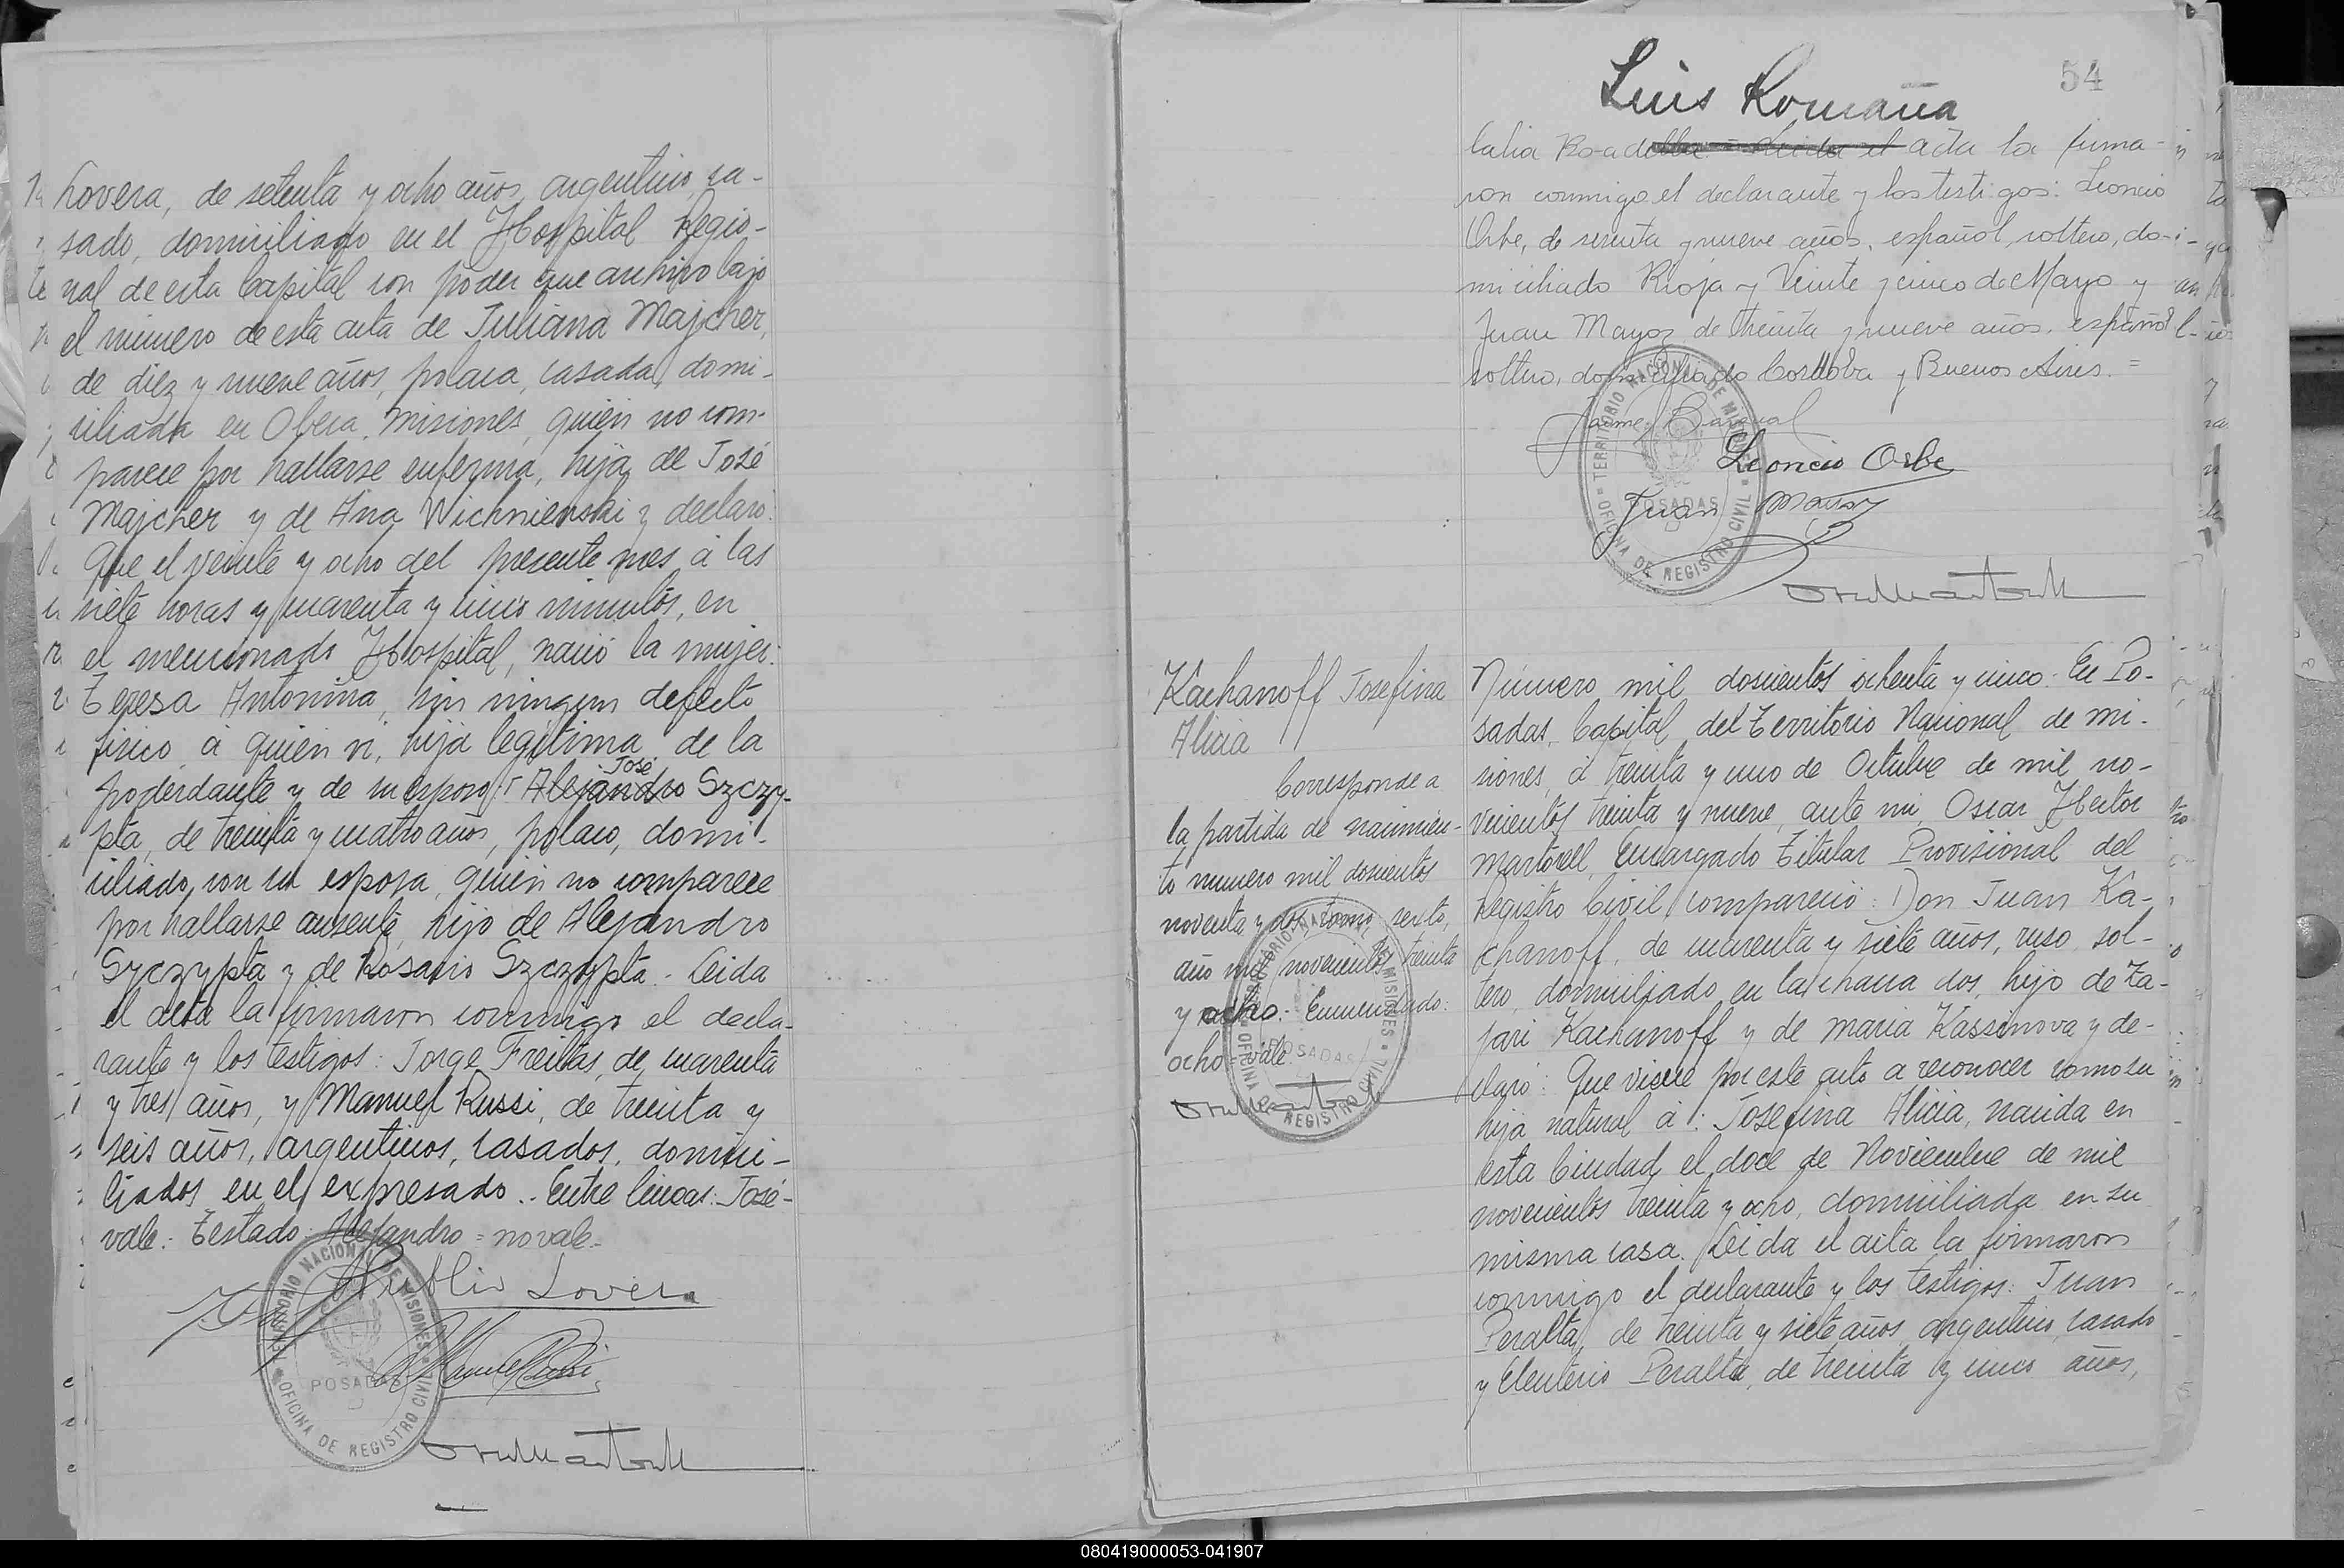 Lovera, de setenta y ocho años, argentino, ca-
sado, domiciliado en el Hospital Regio-
nal de esta Capital con poder que archivo bajo
el número de esta acta de Juliana Majcher,
de diez y nueve años, polaca, casada, domi-
ciliada en Obera, Misiones, quién no com-
parece por hallarse enferma, hija de José
Majcher y de Ana Wichnienski y declaró:
Que el veinte y ocho del presente mes á las
siete horas y cuarenta y cinco minutos, en
el mencionado Hospital, nació la mujer:
Teresa Antonina, sin ningún defecto
físico á quién ví, hija legítima de la
José
poderdante y de su esposo: Alejandro Szczy-
pta, de treinta y cuatro años, polaco, domi-
ciliado con su esposa, quién no comparece
por hallarse ausente, hijo de Alejandro
Szczypta y de Rosario Szczypta. Leida
el acta la firmaron conmigo el decla-
rante y los testigos: Jorge Freitas, de cuarenta
y tres años, y Manuel Russi, de treinta y
seis años, argentinos, casados, domici-
liados en el expresado.. Entre lineas: José-
vale.- Testado: Alejandro = no vale.-
Publio Lovera
TERRITORIO NACIONAL DE MISIONES
POSADAS
OFICINA DE REGISTRO CIVIL
54
Luis Romaña
acta la firma-
ron conmigo el declarante y los testigos: Leoncio
Orbe, de sesenta y nueve años, español, soltero, do-
miciliado Rioja y Veinte y cinco de Mayo y
Juan Mayoz de treinta y nueve años, español
soltero, domiciliado Cordoba y Buenos Aires. =
Leoncio Orbe
Juan Mayoz
TERRITORIO NACIONAL DE MISIONES
POSADAS
OFICINA DE REGISTRO CIVIL
Kachanoff Josefina
Alicia
Corresponde a
la partida de nacimien-
to numero mil doscientos
noventa y dos, tomo sexto,
año mil novecientos treinta
y ocho.- Enmendado:
ocho = vale
TERRITORIO NACIONAL DE MISIONES
POSADAS
OFICINA DE REGISTRO CIVIL
Número mil doscientos ochenta y cinco: En Po-
sadas, Capital del Territorio Nacional de Mi-
siones, á treinta y uno de Octubre de mil no-
vecientos treinta y nueve, ante mi, Oscar Hector
Martorell, Encargado Titular Provisional del
Registro Civil, compareció: Don Juan Ka-
chanoff, de cuarenta y siete años, ruso, sol-
tero, domiciliado en la chacra dos, hijo de Za-
jari Kachanoff y de Maria Kassinova y de-
claró: Que viene por este acto a reconocer como su
hija natural á: Josefina Alicia, nacida en
esta Ciudad, el doce de Noviembre de mil
novecientos treinta y ocho, domiciliada en su
misma casa. Leida el acta la firmaron
conmigo el declarante y los testigos: Juan
Peralta, de treinta y siete años, argentino, casado
y Eleuterio Peralta, de treinta y cinco años,
080419000053-041907